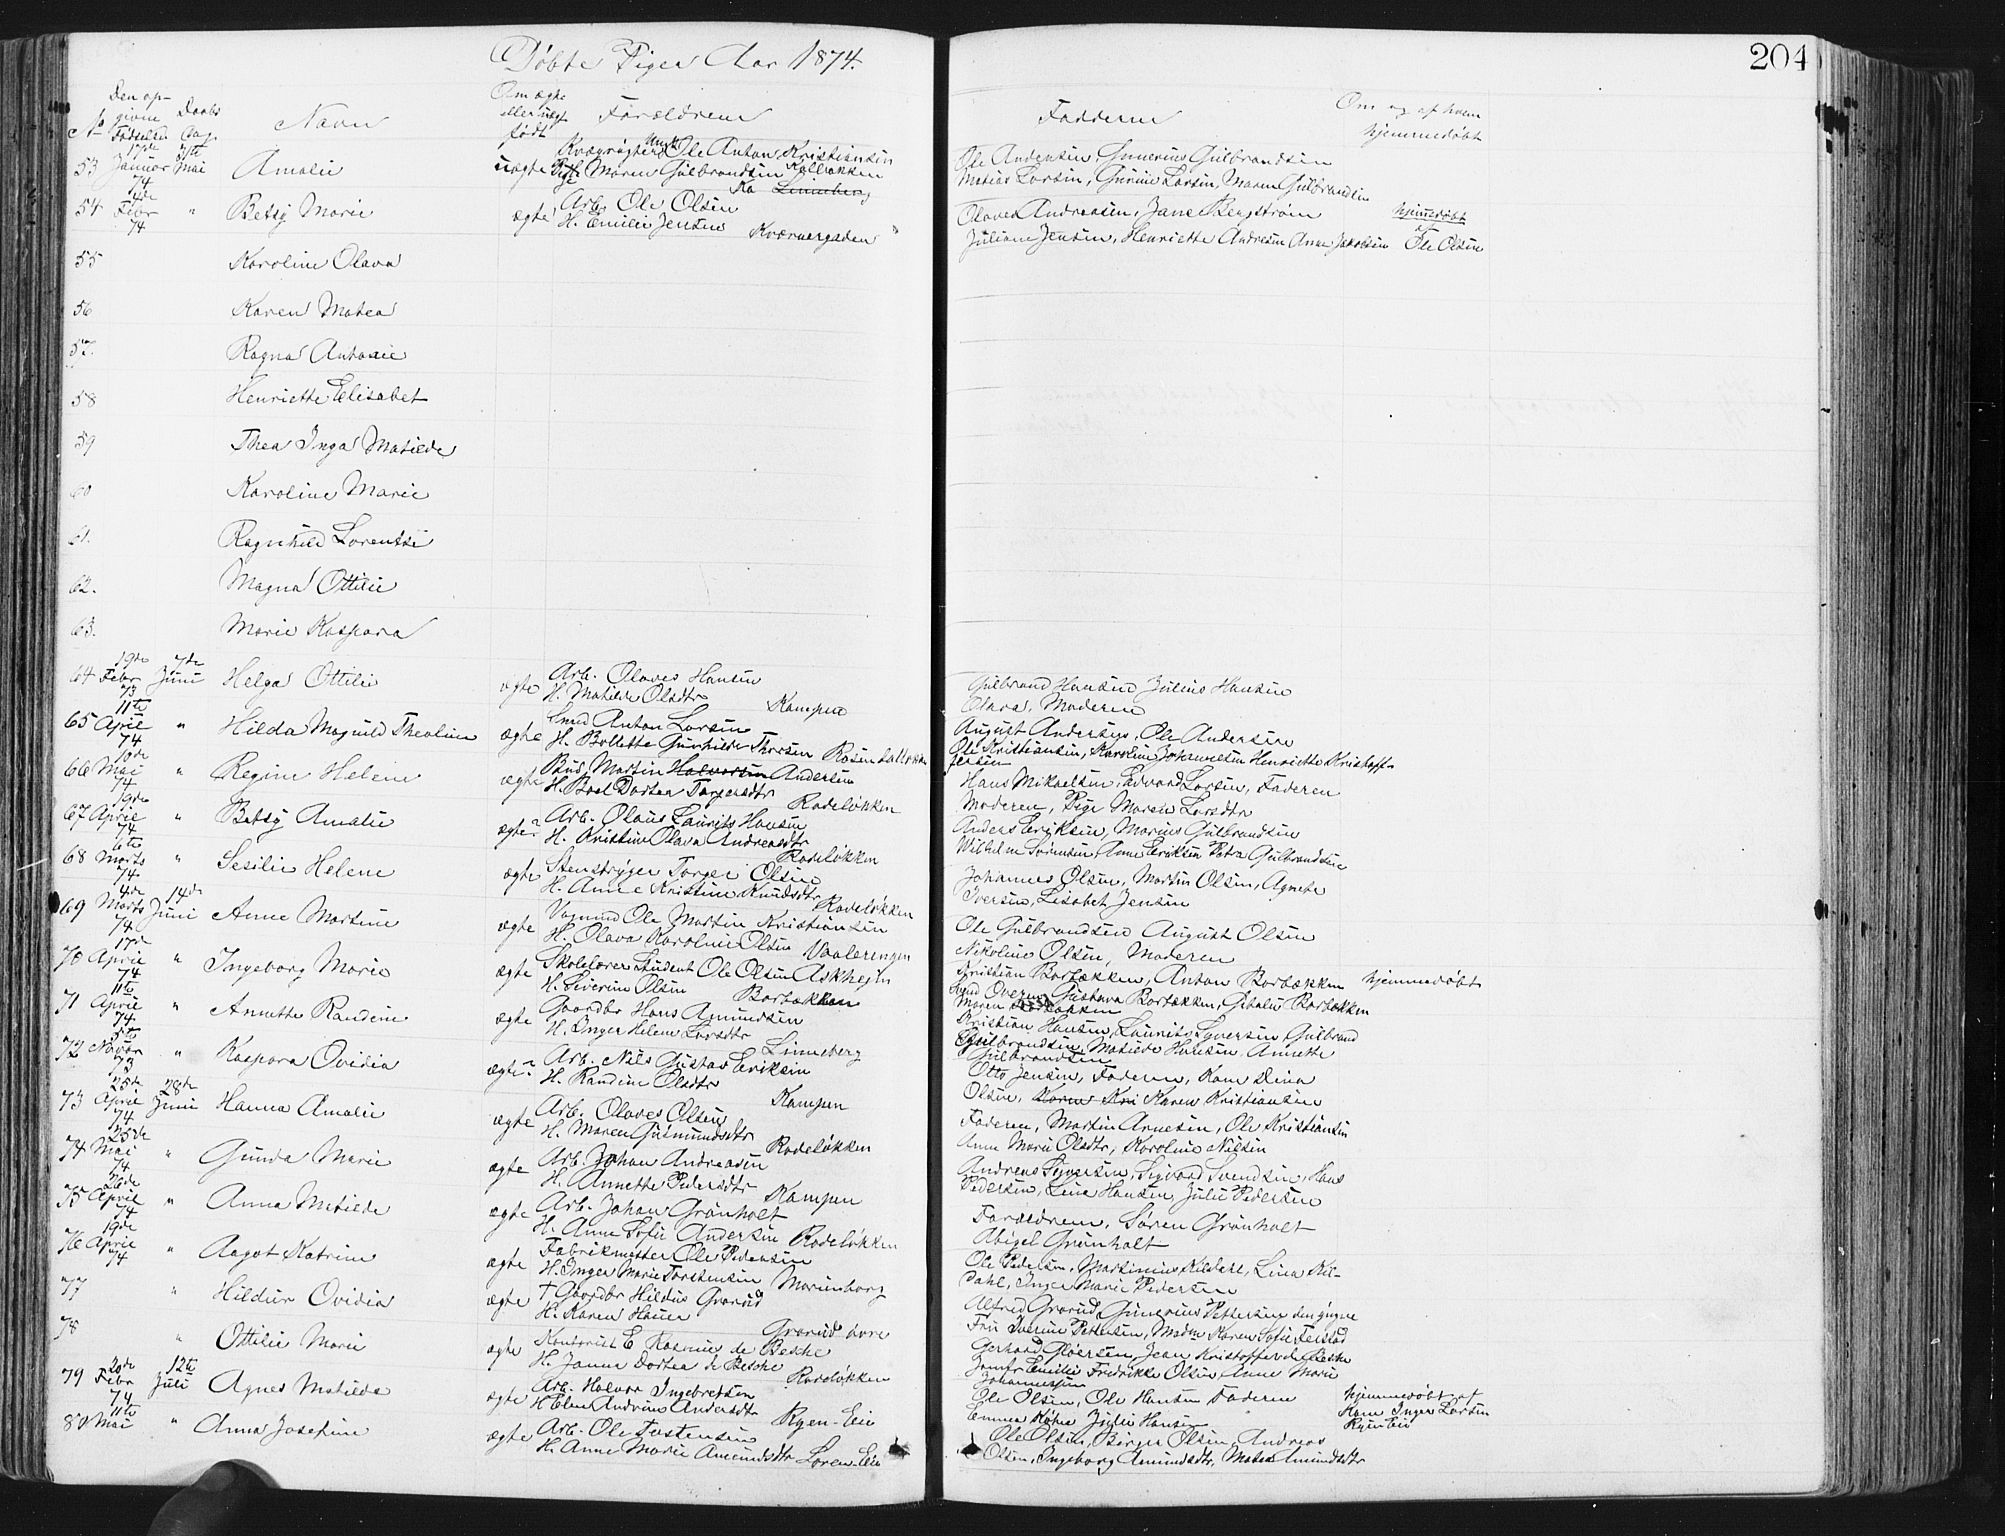 Døbte Piger Aar 1874.
204
No
Den op-
givne
Fødselsd
Daabs
Dag
Navn
Om ægte
eller uægt
født
Forældrene
Fadderne
Om og af hvem
hjemmedøbt
53 17de Januar 74 31te Mai Amalie uægte Ole Anton Kristiansen
Pige Maren Gulbrandsen Kalbakken
Ole Andersen, Gunerius Gulbrandsen
Matias Larsen, Gurine Larsen, Maren Gulbrandsen
54 4de Febr 74 " Betsy Marie ægte Arb. Ole Olsen
H. Emilie Jensen Kværnergaden
Olaves Andreasen, Jane Bergstrøm hjemmedøbt
Juliane Jensen, Henriette Andresen Anne Jakobsen af Ole Olsen
55 Karoline Olava
56 Karen Matea
57. Ragna Antonie
58 Henriette Elisabet
59 Thea Inga Matilde
60 Karoline Marie
61. Ragnhild Lorentse
62. Magna Ottilie
63. Marie Kaspara
64 19de Febr 73 7de Juni Helga Ottilie ægte Arb. Olaves Hansen
H. Matilde Olsdtr Kampen
Gulbrand Hansen Julius Hansen
Olava, Moderen
65 11te April 74 " Hilda Magnild Theoline ægte Smed Anton Larsen
H. Bollette Gunhilde Thorsen Rosendalløkken
August Andersen, Ole Andersen
Ole Kristiansen, Karoline Johannesen Henriette Kristoff-
fersen
66 10de Mai 74 " Regine Helene ægte Bud Martin Halvorsen Andersen
H. Boel Dortea Torgersdtr Rodeløkken
Hans Mikaelsen, Edvard Larsen, Faderen
Moderen, Pige Maren Larsdtr
67 19de April 74 " Betsy Amalie ægte Arb. Olaus Laurits Hansen
H. Kristine Olava Andreasdtr Rodeløkken
Anders Eriksen, Marius Gulbrandsen
Wilhelm Sørensen, Anne Eriksen Petra Gulbrandsen
68 6te Marts 74 " Sesilie Helene ægte Stenstryger Torger Olsen
H. Anne Kristine Knudsdtr Rodeløkken
Johannes Olsen, Martin Olsen, Agnete
Iversen, Lisabet Jensen
69 4de Marts 74 14de Juni Anne Martine ægte Vognmd Ole Martin Kristiansen
H. Olava Karoline Olsen Vaalerengen
Ole Gulbrandsen August Olsen
Nikoline Olsen, Moderen
70 17de April 74 " Ingeborg Marie ægte Skolelærer Student Ole Olsen Askhejm
H. Severine Olsen Borbakken
Kristian Borbækken, Anton Borbækken hjemmedøbt
Gustava Borbækken, Borbækken
Maren
71 11te April 74 " Annette Randine ægte Gaardbr Hans Amundsen
H. Inger Helene Larsdtr Linneberg
Kristian Hansen, Laurits Syversen Gulbrand
Gulbrandsen Matilde Hansen Annette
Gulbrandsen
72 5te Novbr 73 " Kaspara Ovidia ægte Arb. Nils Gustav Eriksen
H. Randine Olsdtr Kampen
Otto Jensen, Faderen, Kone Dina
Olsen, Karen Kri Karen Kristiansen
73 25de April 74 28de Juni Hanna Amalie ægte Arb. Olaves Olsen
H. Maren Gudmundsdtr Rodeløkken
Faderen, Martin Arnesen, Ole Kristiansen
Anne Marie Olsdtr, Karoline Nilsen
74 25de Mai 74 " Gunda Marie ægte Arb. Johan Andreasen
H. Annette Pedersdtr Kampen
Andreas Syversen, Sigvard Svendsen, Hans
Pedersen, Lina Hansen, Julie Pedersen
75 26de April 74 " Anna Matilde ægte Arb. Johan Grønholt
H. Anne Sofie Andersen Rodeløkken
Forældrene, Søren Grønholt
Abigel Grønholt
76 19de April 74 " Aagot Katrine ægte Fabrikmester Ole Pedersen
H. Inger Marie Torstensen Marienborg
Ole Pedersen, Martinius Kildahl, Lina Kil-
dahl, Inger Marie Pedersen
77 " Hildur Ovidia ægte † Gaardbr Hildus Grorud
H. Karen Hauer Grorud øvre
Alfred Grorud, Gunerius Pettersen den yngre
Fru Iverine Pettersen, Madm Karen Sofie
78 " Ottilie Marie ægte Kontorist E Rasmus de Besche
H. Janna Dortea de Besche Rodeløkken
Gerhard Gløersen, Jean Kristoffer de Besche
Jomfr Emilie Fredrikke Olsen, Anne Marie
Johannessen
79 20de Febr 74 12te Juli Agnes Matilde ægte Arb. Halvor Ingebretsen
H. Elen Andrine Andersdtr Ryen-Eie
Ole Olsen, Ole Hansen Faderen hjemmedøbt af
Emma Julie Hansen Kone Inger Larsen
Ryen Eie
80 11te Mai " Anna Josefine ægte Arb. Ole Tostensen
H. Anne Marie Amundsdtr Loren-Eie
Ole Olsen, Birger Olsen, Andreas
Olsen, Ingeborg Amundsdtr, Matea Amundsdtr